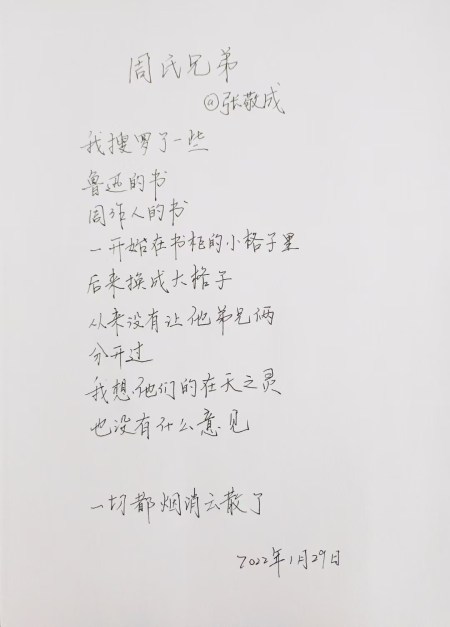 周氏兄弟
@张敬成
我搜罗了一些
鲁迅的书
周作人的书
一开始在书柜的小格子里
后来换成大格子
从来没有让他弟兄俩
分开过
我想他们的在天之灵
也没有什么意见
一切都烟消云散了
2022年1月29日